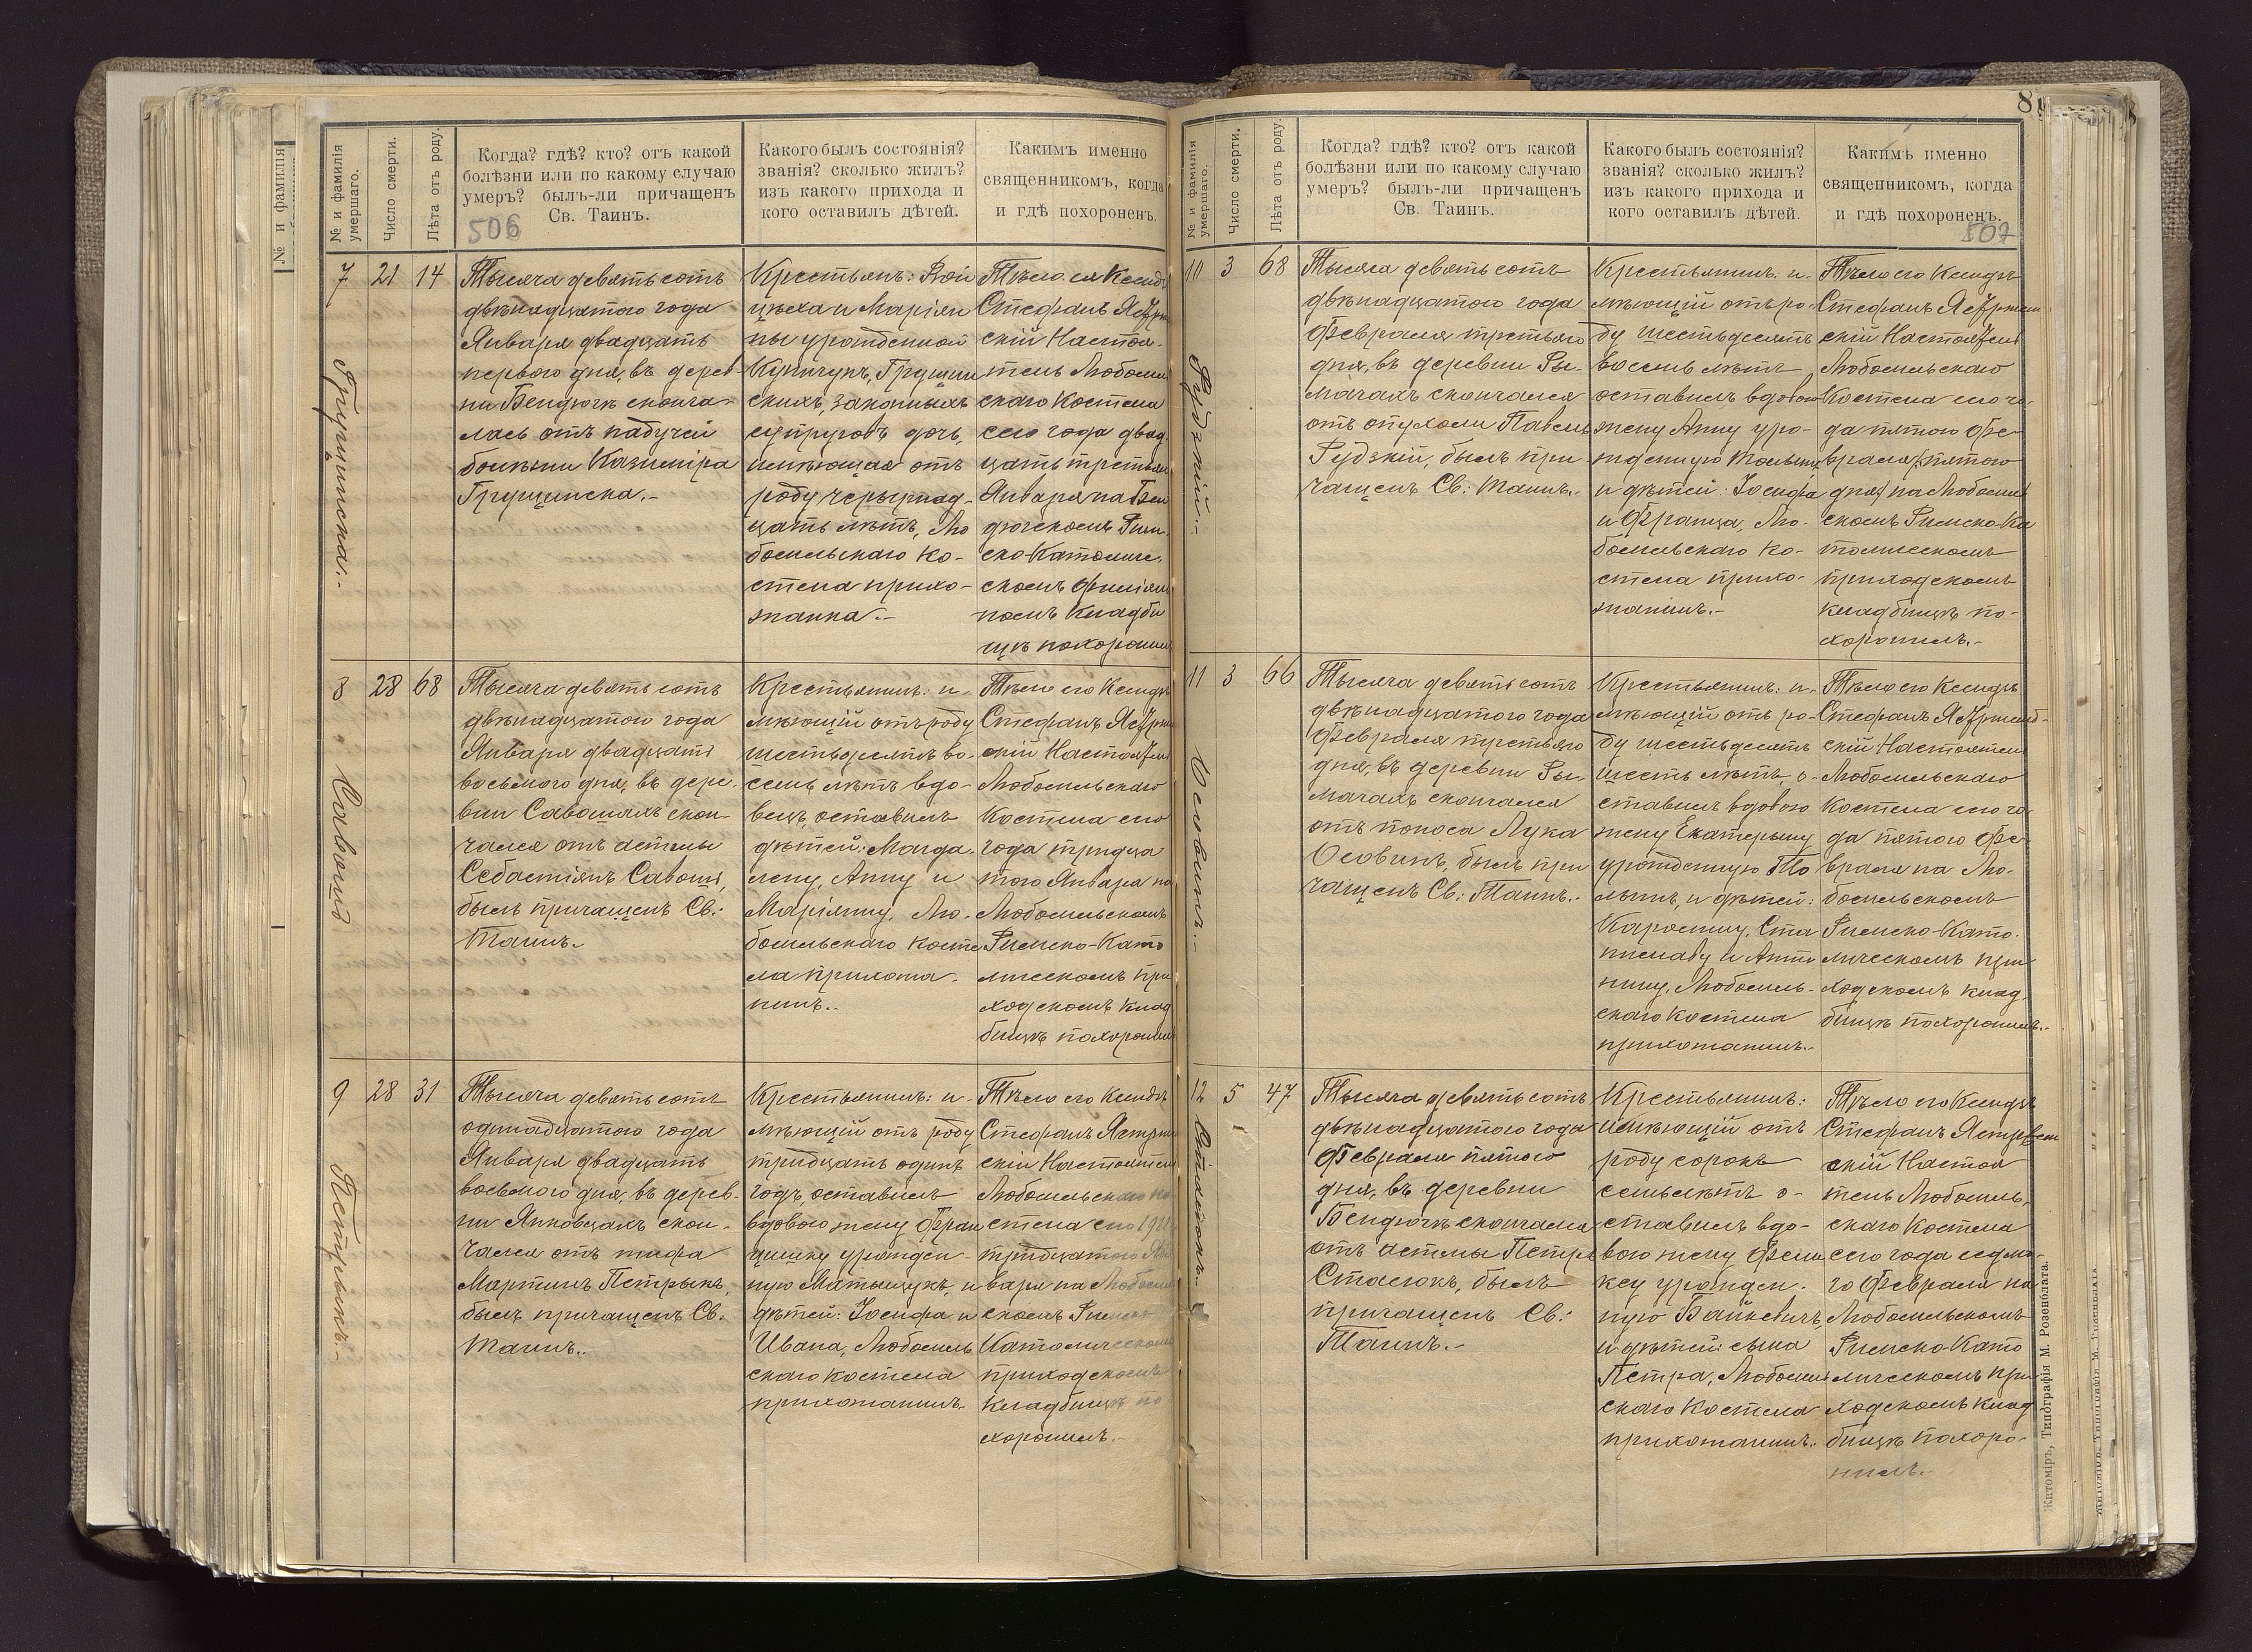 № и фамилія
№ и фамилія умершаго.
Число смерти.
Лѣта отъ роду.
Когда? гдѣ? кто? отъ какой
болѣзни или по какому случаю
умеръ? былъ-ли причащенъ
Св. Таинъ.
506
Какого былъ состоянія?
званія? сколько жилъ?
изъ какого прихода и
кого оставилъ дѣтей.
Какимъ именно
священникомъ, когда
и гдѣ похороненъ.
7
21
14
Грущинска.-
Тысяча девятьсотъ
двѣнадцатого года
Января двадцать
первого дня, въ дерев-
ни Бендюгѣ сконча-
лась отъ падучей
болѣзни Казиміра
Грущинска.-
Крестьянъ: Вой
цѣха и Маріян
ны урожденной
Грущин
скихъ, законныхъ
супруговъ дочь,
имѣющая отъ
роду четырнад-
цать лѣтъ, Лю
бомльскаго ко-
стела прихо-
жанка.-
Тѣло ея Ксендзъ
Стефанъ Ястрж
скій Настоя-
тель Любомль
скаго костела
сего года двад
цать третьяго
Января на Бен
дюгскомъ Рим-
ско-Католиче-
скомъ филіяль
номъ кладби
щѣ похоронилъ
8
28
68
Савошъ
Тысяча девятьсотъ
двѣнадцатого года
Января двадцать
восьмого дня, въ дере-
вни Савошахъ скон-
чался отъ астмы
Себастіянъ Савошъ,
былъ причащенъ Св.:
Таинъ.-
Крестьянинъ: и-
мѣющій отъ роду
шестьдесятъ во-
семь лѣтъ вдо-
вецъ, оставилъ
дѣтей: Магда-
лену, Анну и
Маріянну, Лю-
бомльскаго косте
ла прихожа-
нинъ.-
Тѣло его Ксендзъ
Стефанъ Ястрж
скій Настоятель
Любомльскаго
Костела сего
года тридца
того Января на
Любомльскомъ
Римско-Като
лическомъ при
ходскомъ клад
бищѣ похоронилъ
9
28
31
Петрыкъ.-
Тысяча девятьсотъ
одинадцатого года
Января двадцать
восьмого дня, въ дерев-
ни Янковцахъ скон-
чался отъ тифа
Мартинъ Петрыкъ,
былъ причащенъ Св.
Таинъ..
Крестьянинъ: и-
мѣющій отъ роду
тридцать одинъ
годъ, оставилъ
вдовою жену Фран
цишку урожден-
ную Матыщукъ, и
дѣтей: Іосифа и
Ивана, Любомль
скаго костела
прихожанинъ.
Тѣло его Ксендзъ
Стефанъ Ястрж
скій Настоятель
Любомльскаго ко
стела сего
тридцатого Ян
варя на Любомль
скомъ Римско
Католическомъ
приходскомъ
кладбищѣ по
хоронилъ.-
8
№ и фамилія умершаго.
Число смерти.
Лѣта отъ роду.
Когда? гдѣ? кто? отъ какой
болѣзни или по какому случаю
умеръ? былъ-ли причащенъ
Св. Таинъ.
Какого былъ состоянія?
званія? сколько жилъ?
изъ какого прихода и
кого оставилъ дѣтей.
Какимъ именно
священникомъ, когда
и гдѣ похороненъ.
507
10
3
68
Рудзкій.-
Тысяча девятьсотъ
двѣнадцатого года
Февраля третьяго
дня, въ деревни Ры-
мачахъ скончался
отъ опухоли Павелъ
Рудзкій, былъ при
чащенъ Св: Таинъ.-
Крестьянинъ: и-
мѣющій отъ ро-
ду шестьдесятъ
восемь лѣтъ,
оставилъ вдовою
жену Анну уро-
жденную
и дѣтей: Іосифа
и Франца, Лю-
бомльскаго ко-
стела прихо-
жанинъ.-
Тѣло его Ксендзъ
Стефанъ Ястржем
скій Настоятель
Любомльскаго
Костела сего го-
да пятого Фе-
враля (пятого
дня) на Любомль
скомъ Римско-Ка
толическомъ
приходскомъ
кладбищѣ по-
хоронилъ.-
11
3
66
Осовикъ.-
Тысяча девятьсотъ
двѣнадцатого года
Февраля третьяго
дня, въ деревни Ры-
мачахъ скончался
отъ поноса Лука
Осовикъ, былъ при
чащенъ Св: Таинъ.-
Крестьянинъ: и-
мѣющій отъ ро-
ду шестьдесятъ
шесть лѣтъ, о-
ставилъ вдовою
жену Екатерыну
урожденную
и дѣтей:
Каролину, Ста
ниславу и Анто
нину, Любомль-
скаго костела
прихожанинъ.-
Тѣло его Ксендзъ
Стефанъ Ястржемб-
скій Настоятель
Любомльскаго
Костела сего го-
да пятого Фе-
враля на Лю-
бомльскомъ
Римско-Като-
лическомъ при
ходскомъ клад-
бищѣ похоронилъ.-
12
5
47
Стасюкъ.-
Тысяча девятьсотъ
двѣнадцатого года
Февраля пятого
дня, въ деревни
Бендюгѣ скончался
отъ астмы Петръ
Стасюкъ, былъ
причащенъ Св:
Таинъ.-
Крестьянинъ:
имѣющій отъ
роду сорокъ
семь лѣтъ о-
ставилъ вдо-
вою жену Фели
ксу урожден-
ную Байкевичъ,
и дѣтей: сына
Петра, Любомль
скаго костела
прихожанинъ.
Тѣло его Ксендзъ
Стефанъ Ястржем
скій Настоя
тель Любомль-
скаго Костела
сего года седмо-
го Февраля на
Любомльскомъ
Римско-Като
лическомъ при-
ходскомъ клад
бищѣ похоро-
нилъ.-
Житоміръ, Типографія М. Розенблата.